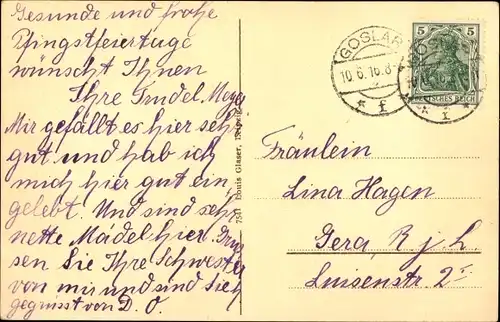 Gesunde und frohe
Pfingstfeiertage
wünscht Ihnen
Ihre Trudel Meyer
Mir gefällt es hier sehr
gut und hab ich
mich hier gut ein
gelebt. Und sind sehr
nette Mädel hier. Grüs
sen Sie Ihre Schwester
von mir und sind Sie
gegrüsst von D. O.
7591 Louis Glaser, Leipzig
GOSLAR
10.6.16.8-
* f *
GOSLAR
* f
5 5
DEUTSCHES REICH
Fräulein
Lina Hagen
Gera, R. j. L.
Luisenstr. 2 I